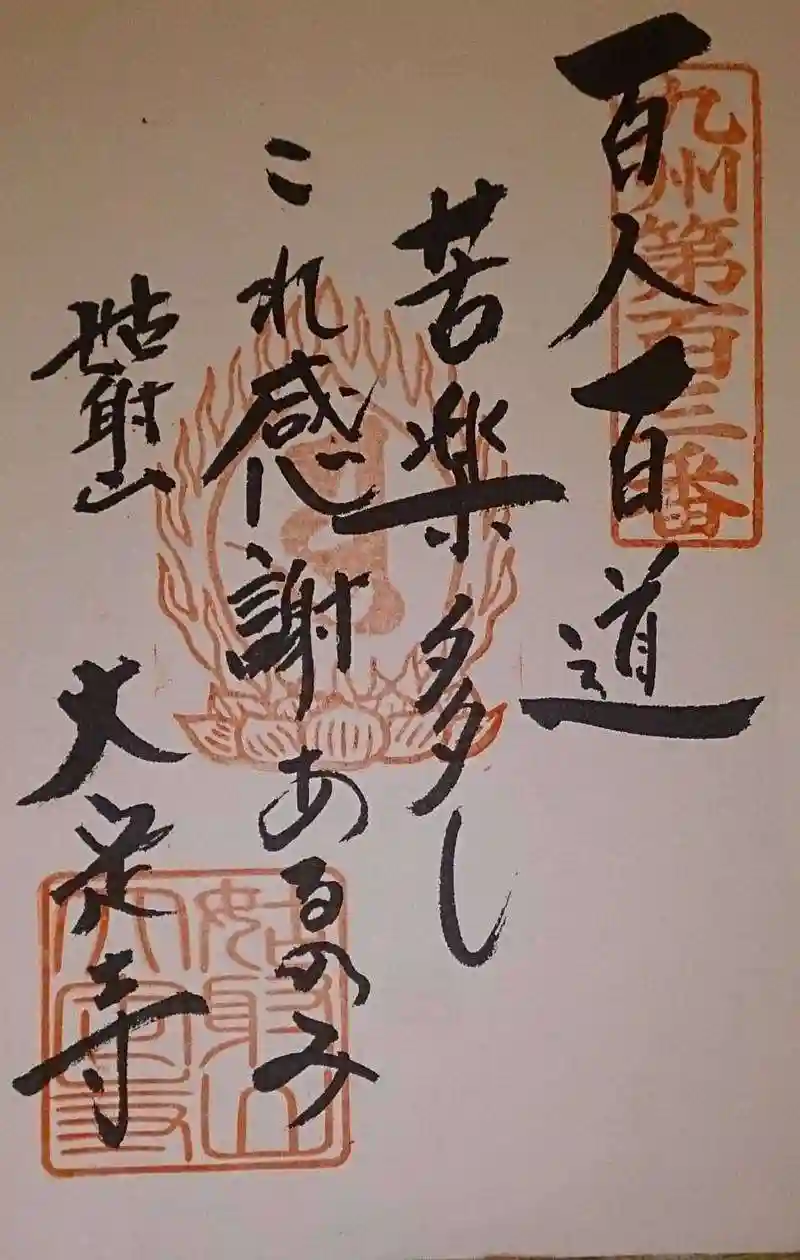 九州第百三番
百人百道
苦楽多し
これ感謝あるのみ
姑射山 大定寺
姑射山
大定寺